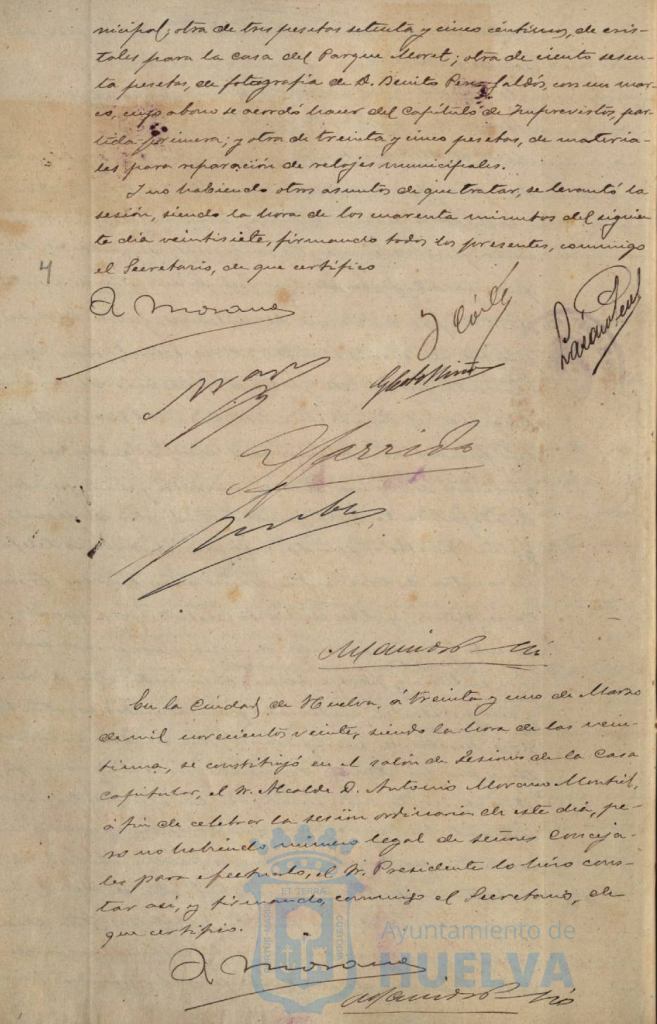 nicipal; otra de tres pesetas setenta y cinco céntimos, de cris-
tales para la casa del Parque Moret; otra de ciento sesen-
ta pesetas, de fotografía de D. Benito Perez Galdós, con un mar-
co, cuyo abono se acordó hacer del Capítulo de Imprevistos, par-
tida primera; y otra de treinta y cinco pesetas, de materia-
les para reparación de relojes municipales.
Y no habiendo otros asuntos de que tratar, se levantó la
sesión, siendo la hora de los cuarenta minutos del siguien-
te día veintisiete, firmando todos los presentes, conmigo
el Secretario, de que certifico
4
A Morano
Garrido
En la Ciudad de Huelva, á treinta y uno de Marzo
de mil novecientos veinte, siendo la hora de las vein-
tiuna, se constituyó en el salón de Sesiones de la Casa
capitular, el Sr. Alcalde D. Antonio Morano Montiel,
á fin de celebrar la sesión ordinaria de este día, pe-
ro no habiendo número legal de señores Conceja-
les para efectuarlo, el Sr. Presidente lo hizo cons-
tar así, y firmando, conmigo el Secretario, de
que certifico.
A Morano
Ayuntamiento de
HUELVA